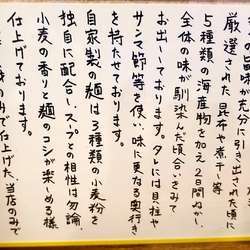 旨味が充分引き出された頃に
厳選された昆布や煮干し等
5種類の海産物を加え2日間ねかし、
全体の味が馴染んだ頃合いをみて
お出ししております。タレには貝柱や
サンマ節等を使い、味に更なる奥行き
を持たせております。
自家製の麺は3種類の小麦粉を
独自に配合し、スープとの相性は勿論、
小麦の香りと麺のコシが楽しめる様、
仕上げております。
のみで仕上げた、当店のみで